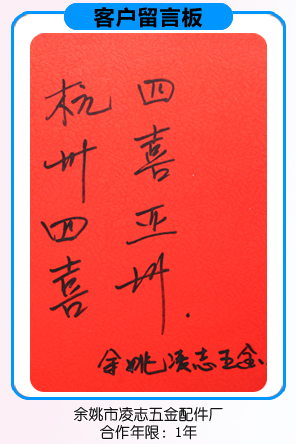 客户留言板
杭州四喜
四喜亚州.
余姚凌志五金
余姚市凌志五金配件厂
合作年限：1年